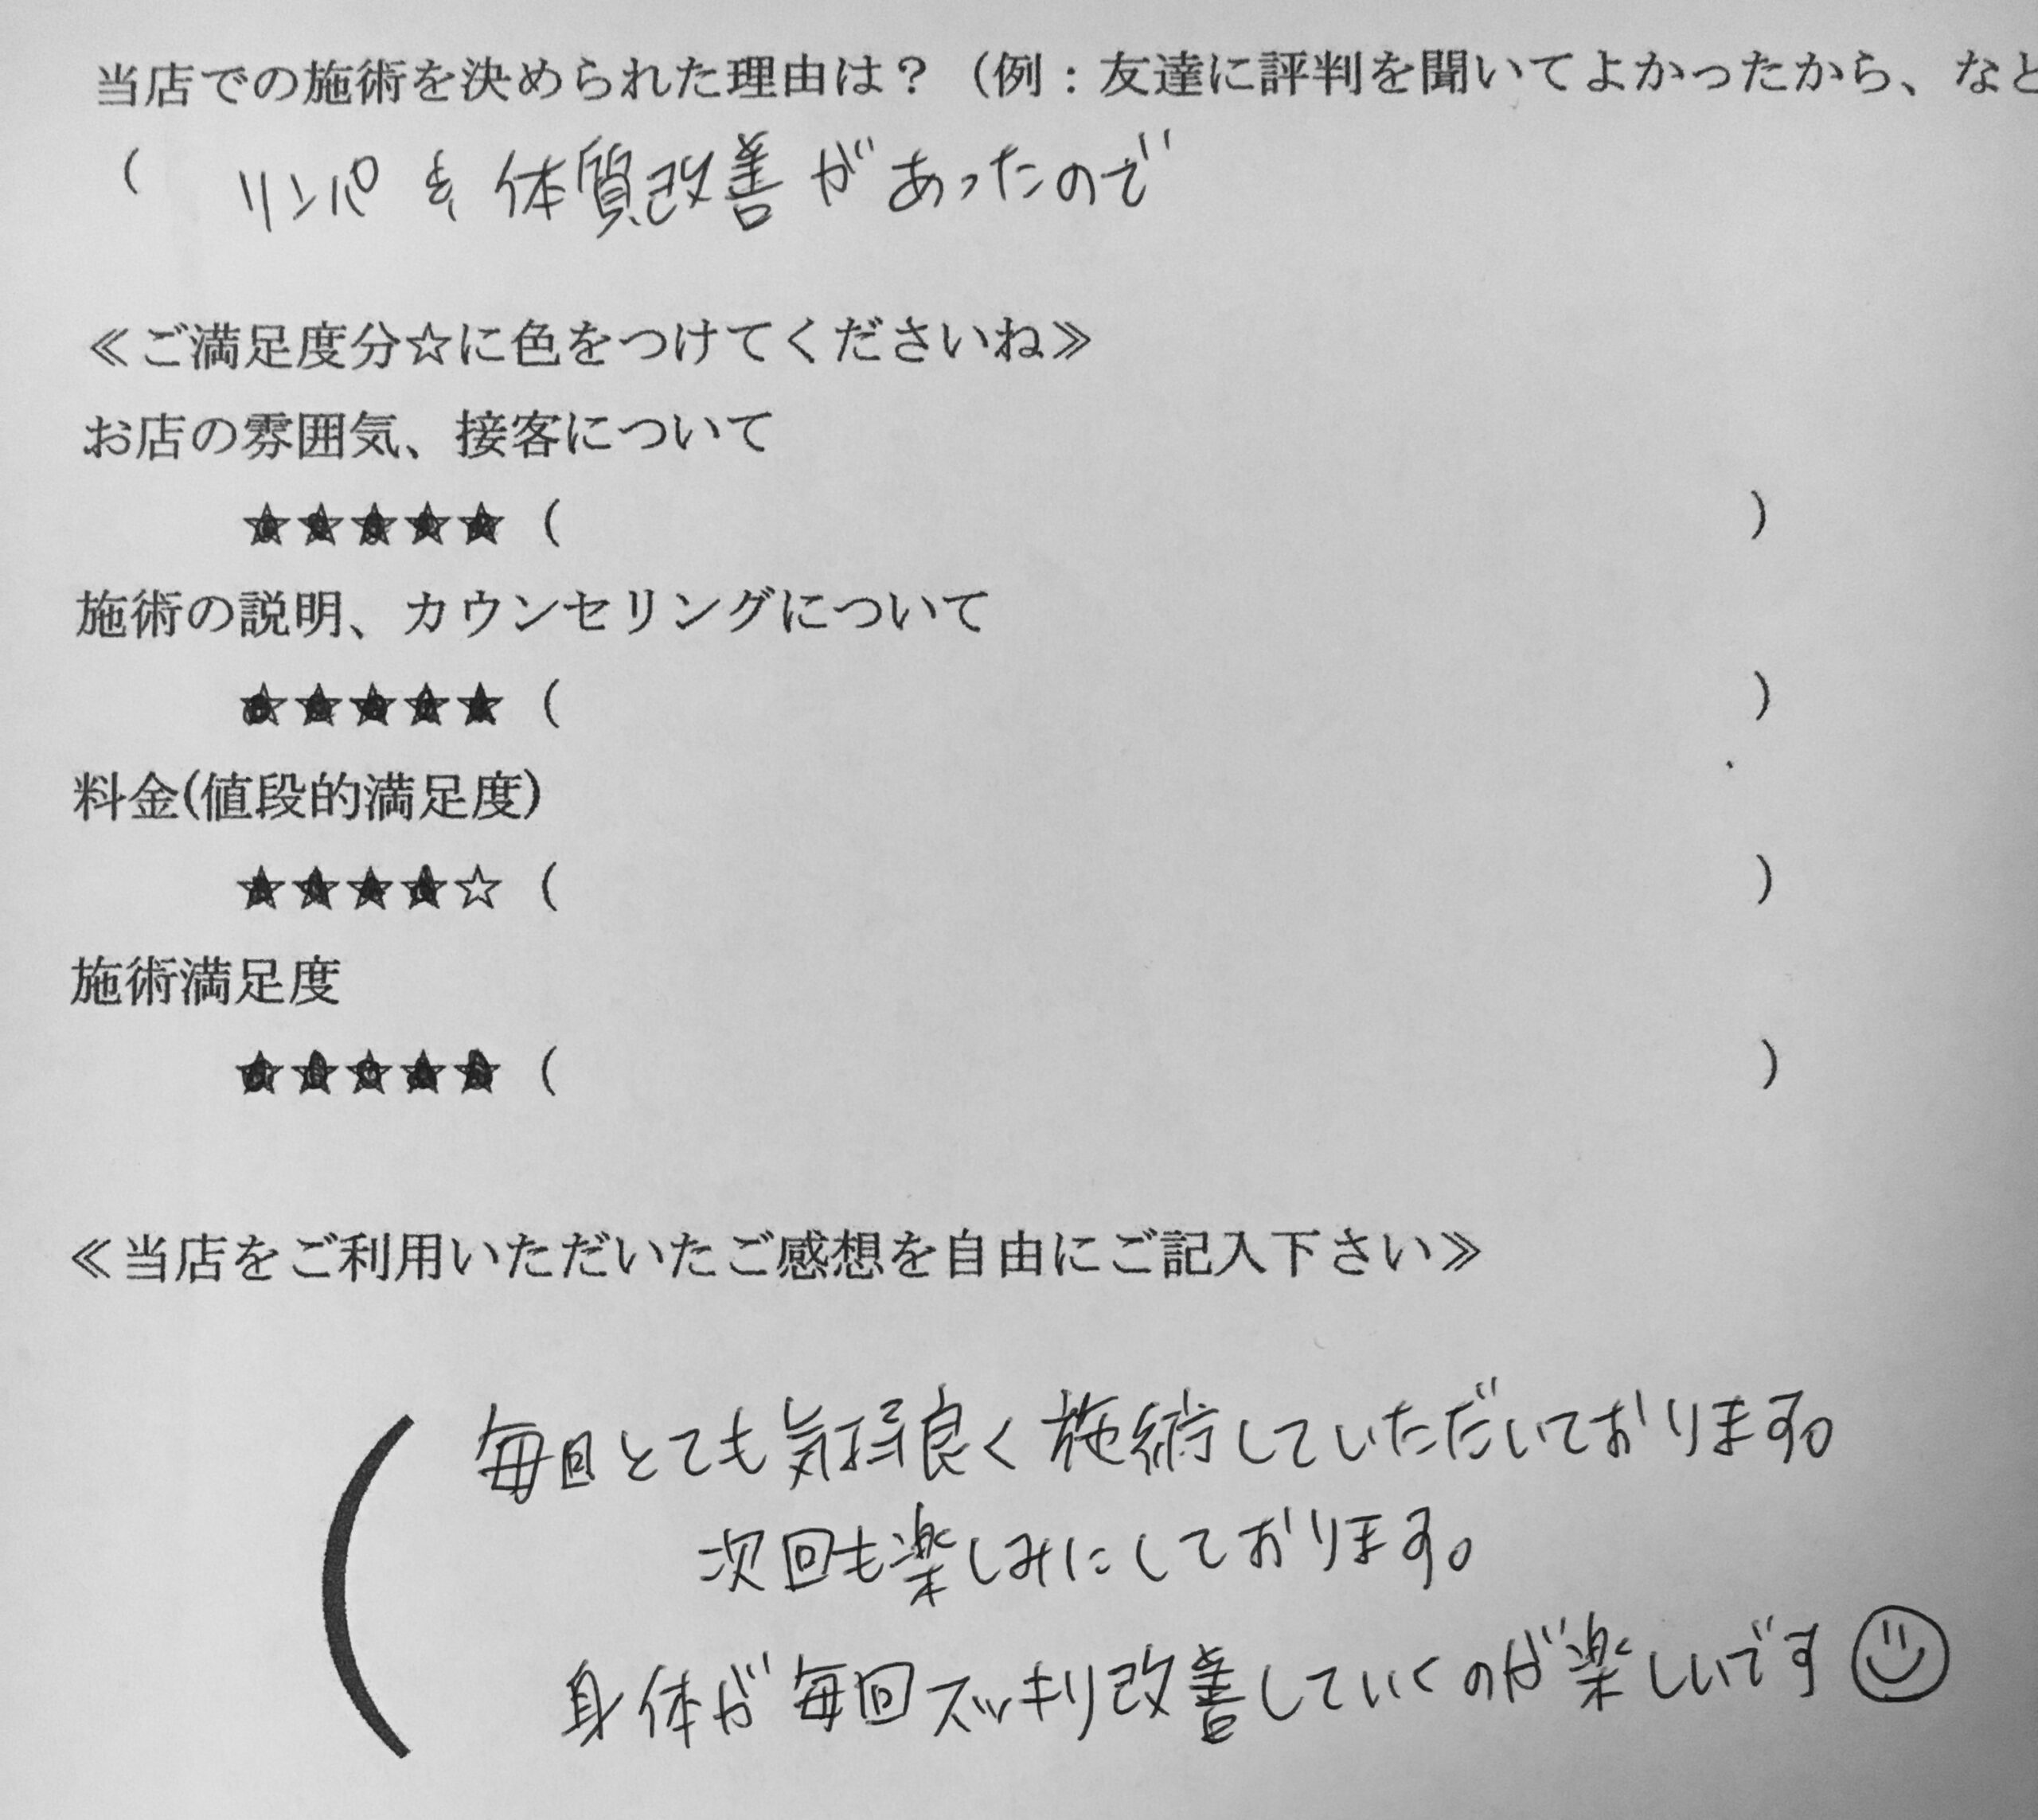 当店での施術を決められた理由は？（例：友達に評判を聞いてよかったから、など
（ リンパ & 体質改善があったので
≪ご満足度分☆に色をつけてくださいね≫
お店の雰囲気、接客について
★★★★★（ ）
施術の説明、カウンセリングについて
★★★★★（ ）
料金(値段的満足度)
★★★★☆（ ）
施術満足度
★★★★★（ ）
≪当店をご利用いただいたご感想を自由にご記入下さい≫
（ 毎回とても気持良く施術していただいております。
次回も楽しみにしております。
身体が毎回スッキリ改善していくのが楽しいです